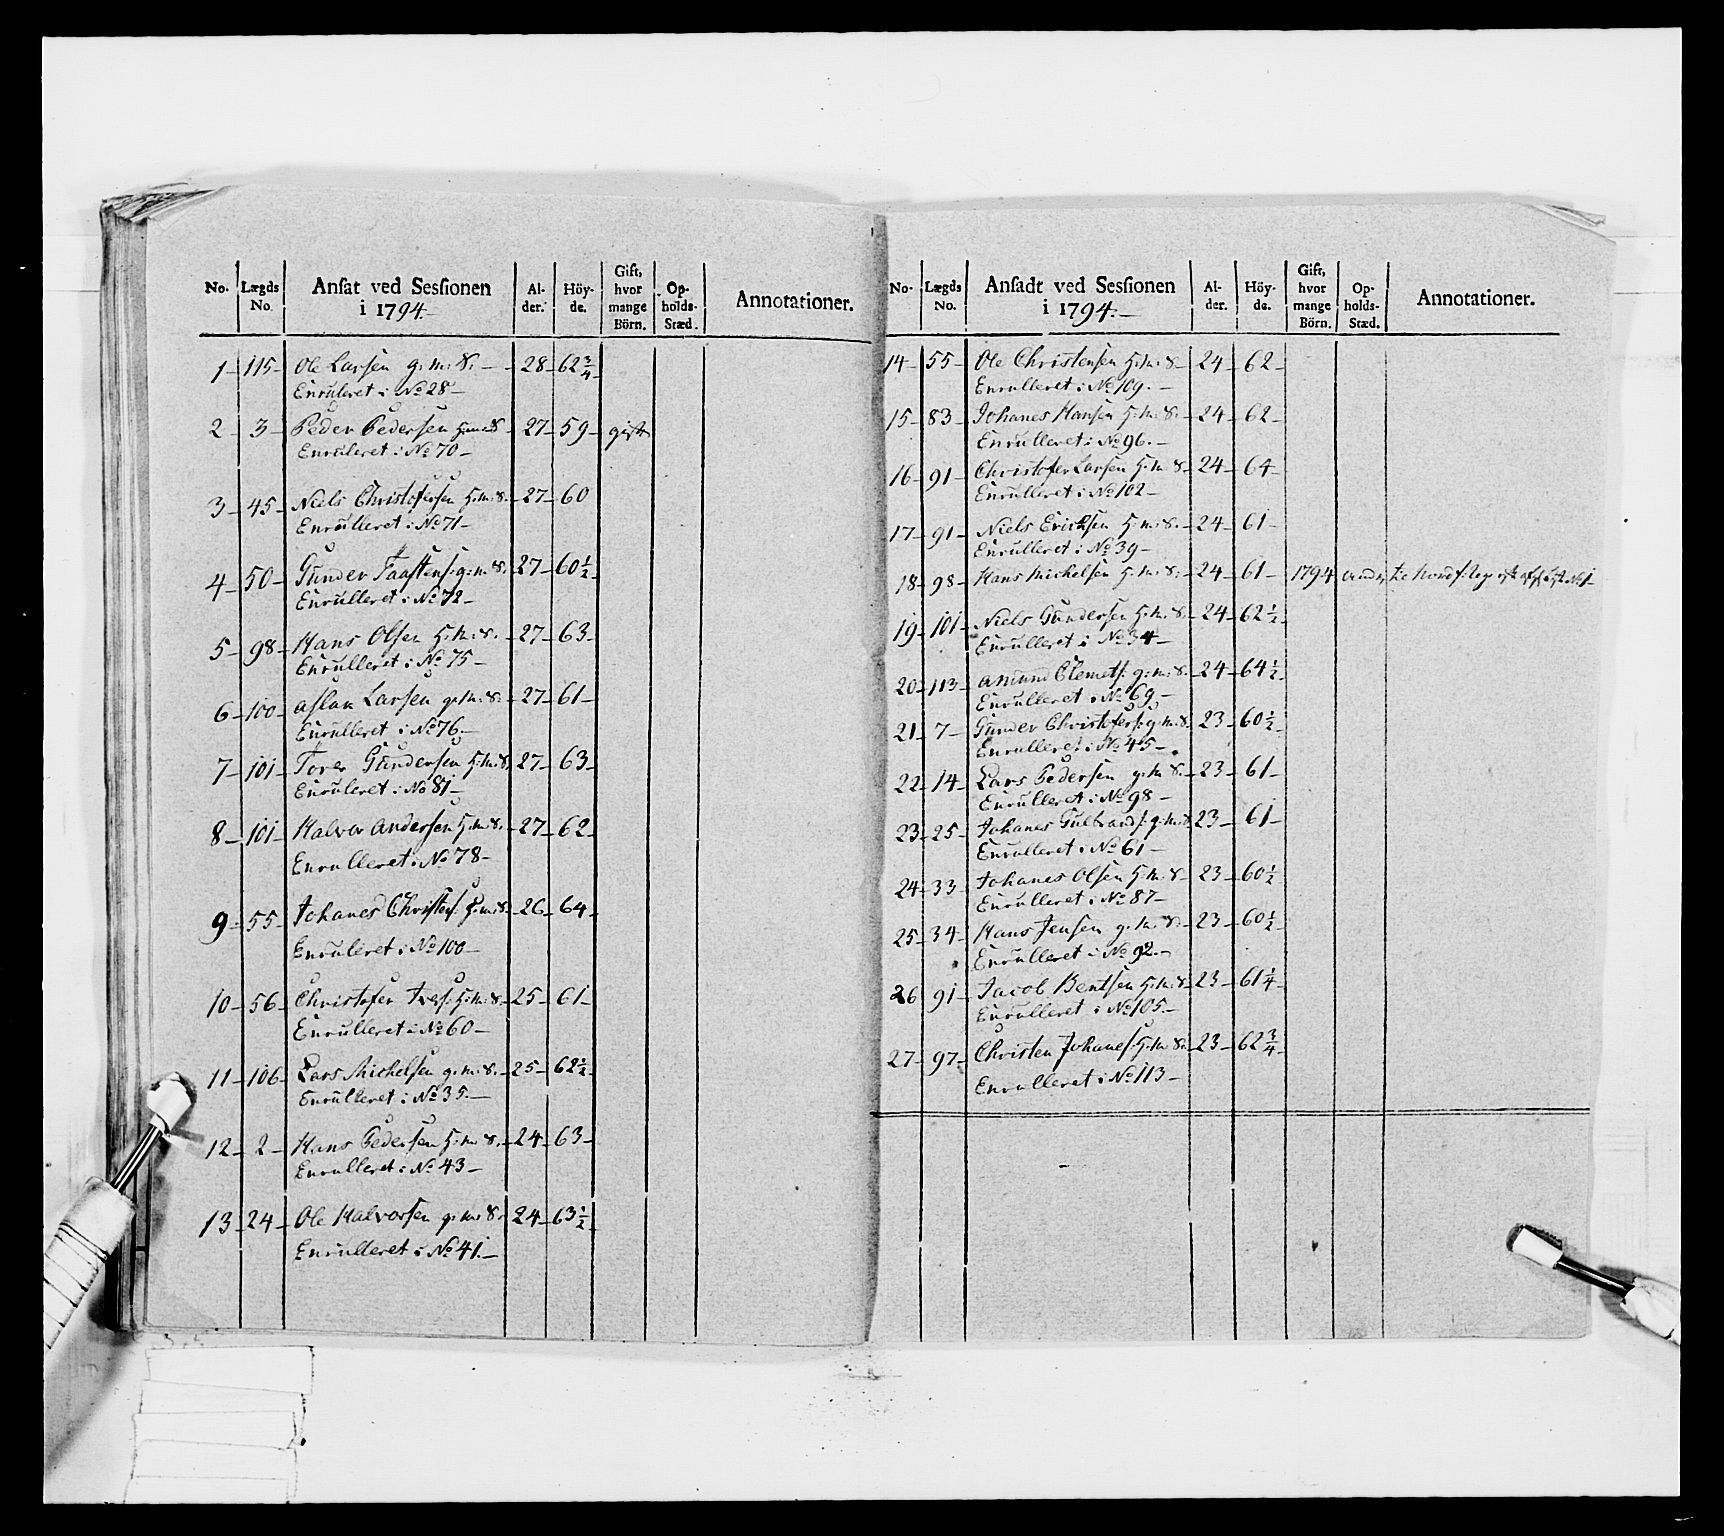 No. Lægds No. Ansat ved Sessionen i 1794. Al-der. Höy-de. Gift, hvor mange Börn. Op-holds-Stæd. Annotationer.
1 115 Ole Larsen g. m. S. 28 62 3/4
Enruleret i No 28
2 3 Peder Pedersen 27 59 gift
Enruleret i No 70
3 45 Niels Christofersen h. m. S. 27 60
Enrulleret i No 71
4 50 Gunder Taastens: g. m. S. 27 60 1/2
Enrulleret i No 72
5 98 Hans Olsen h. m. S. 27 63
Enrulleret i No 75
6 100 Aslak Larsen g. m. S. 27 61
Enrulleret i No 76
7 101 Torer Gundersen h. m. S. 27 63
Enruleret i No 81
8 101 Halvor Andersen h. m. S. 27 62
Enrulleret i No 78
9 55 Johanes Christens: h. m. S. 26 64
Enruleret i No 100
10 56 Christofer Ivers: h. m. S. 25 61
Enrulleret i No 60
11 106 Lars Michelsen g. m. S. 25 62 1/2
Enrulleret i No 35
12 2 Hans Pedersen h. m. S. 24 63
Enrulleret i No 43
13 24 Ole Halvorsen g. m. S. 24 63 1/2
Enrulleret i No 41
No. Lægds No. Ansadt ved Sessionen i 1794. Al-der. Höy-de. Gift, hvor mange Börn. Op-holds-Stæd. Annotationer.
14 55 Ole Christensen h. m. S. 24 62
Enrulleret i No 109
15 83 Johanes Hansen h. m. S. 24 62
Enrulleret i No 96
16 91 Christofer Larsen h. m. S. 24 64
Enrulleret i No 102
17 91 Niels Ericksen h. m. S. 24 61
Enrulleret i No 39
18 98 Hans Michelsen h. m. S. 24 61 1794
19 101 Niels Gundersen h. m. S. 24 62 1/2
Enrulleret i No 34
20 113 Amund Clemets: g. m. S. 24 64 1/2
Enrulleret i No 69
21 7 Gunder Christofers: g. m. S. 23 60 1/2
Enrulleret i No 45
22 14 Lars Pedersen g. m. S. 23 61
Enrulleret i No 98
23 25 Johanes Gulbrands: g. m. S. 23 61
Enrulleret i No 61
24 33 Johanes Olsen h. m. S. 23 60 1/2
Enrulleret i No 87
25 34 Hans Jensen g. m. S. 23 60 1/2
Enrulleret i No 92
26 91 Jacob Bentsen h. m. S. 23 61 1/4
Enrulleret i No 105
27 97 Christen Johanes: h. m. S. 23 62 3/4
Enrulleret i No 113